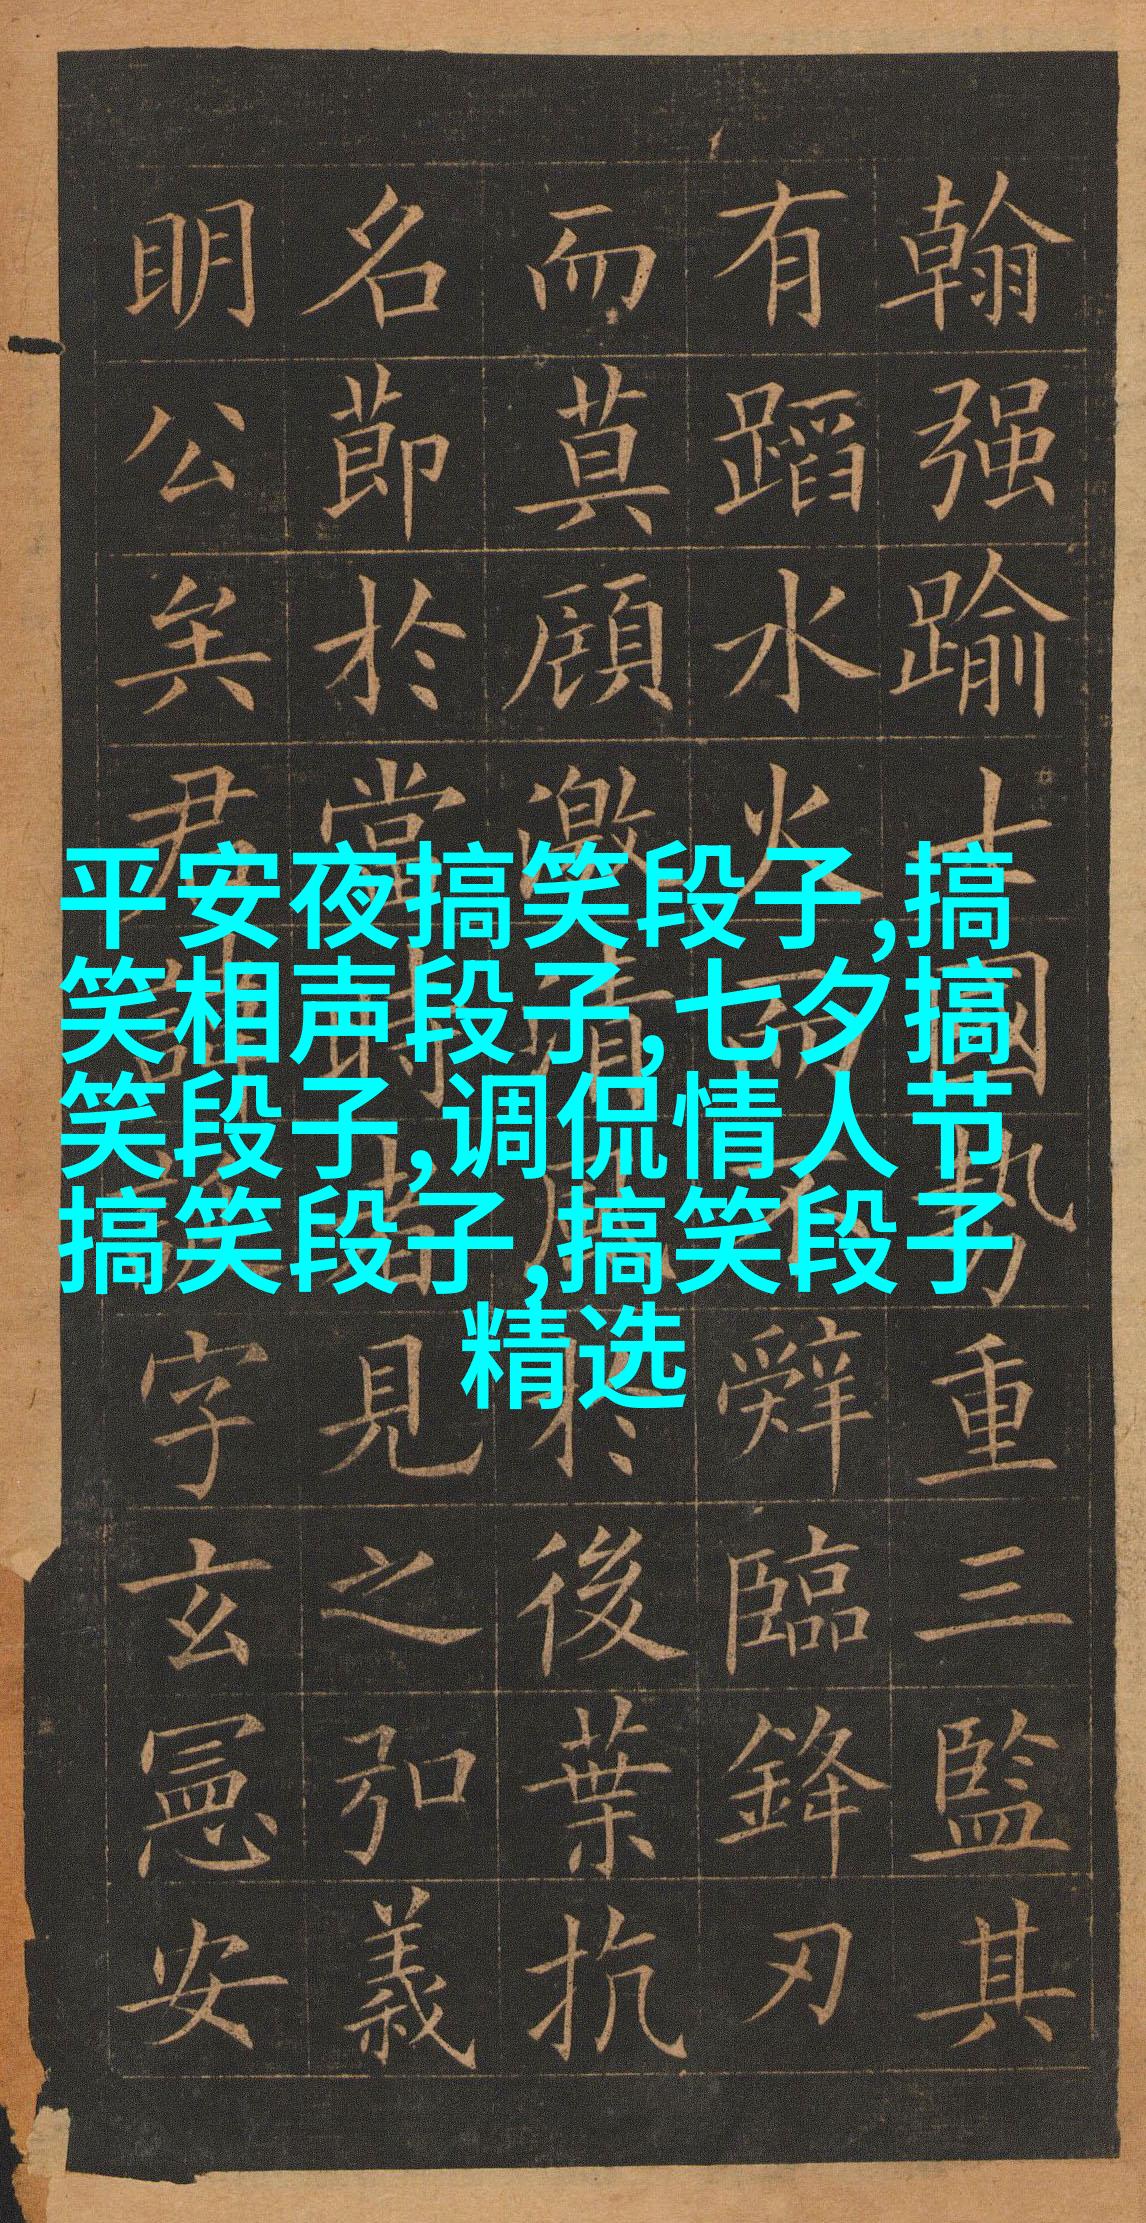 平安夜搞笑段子,搞
笑相声段子,七夕搞
笑段子,调侃情人节
搞笑段子,搞笑段子
精选
翰强踰國勢重三監其
有蹈水火而不辤臨鋒刃
而莫顧激清風於後葉抗
名莭於當時者見之弘義
明公矣君諱字玄憲安